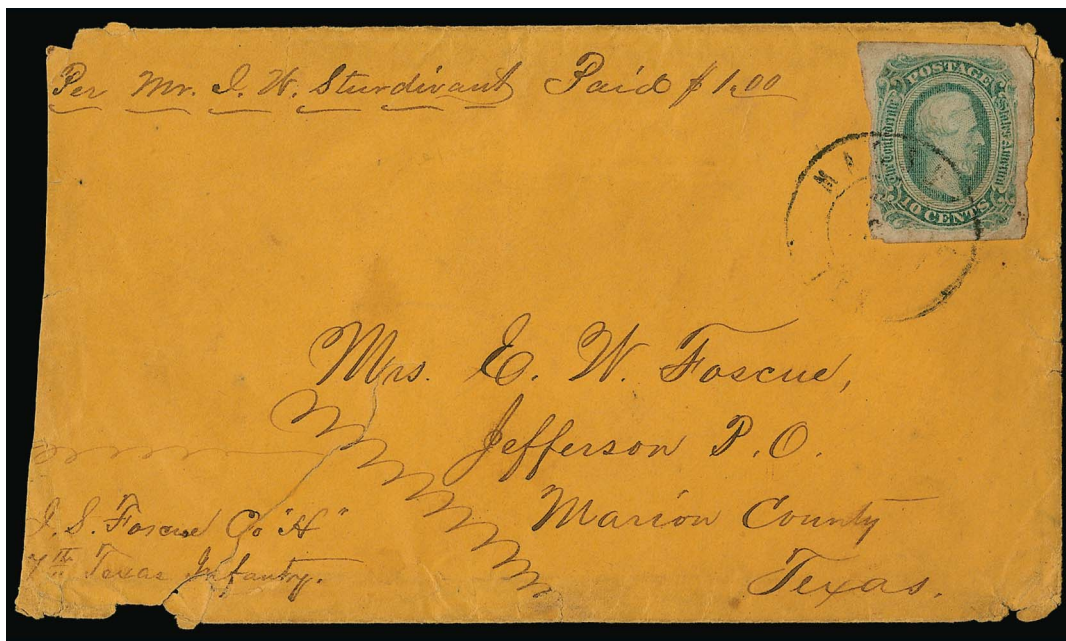 Per Mr. J. W. Sturdivant Paid $1.00
POSTAGE
The Confederate States America
10 CENTS
Mrs. E. W. Foscue,
Jefferson P. O.
Marion County
Texas.
J. S. Foscue Co "H"
7th Texas Infantry.